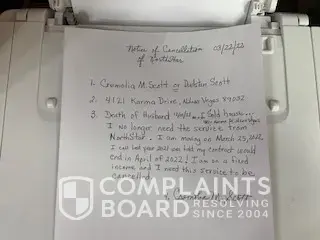 Notice of Cancellation 03/22/22
of NorthStar
1. Cromolia M. Scott or Dustin Scott
2. 4121 Karma Drive, N. Las Vegas 89032
3. Death of Husband I Sold house...
I no longer need the service from
NorthStar. I am moving at March 25, 2022
I call last year 2021 and told my contract would
end in April of 2022! I am on a fixed
income and I need this service to be
cancelled.
M. Scott
COMPLAINTS
BOARD RESOLVING
SINCE 2004